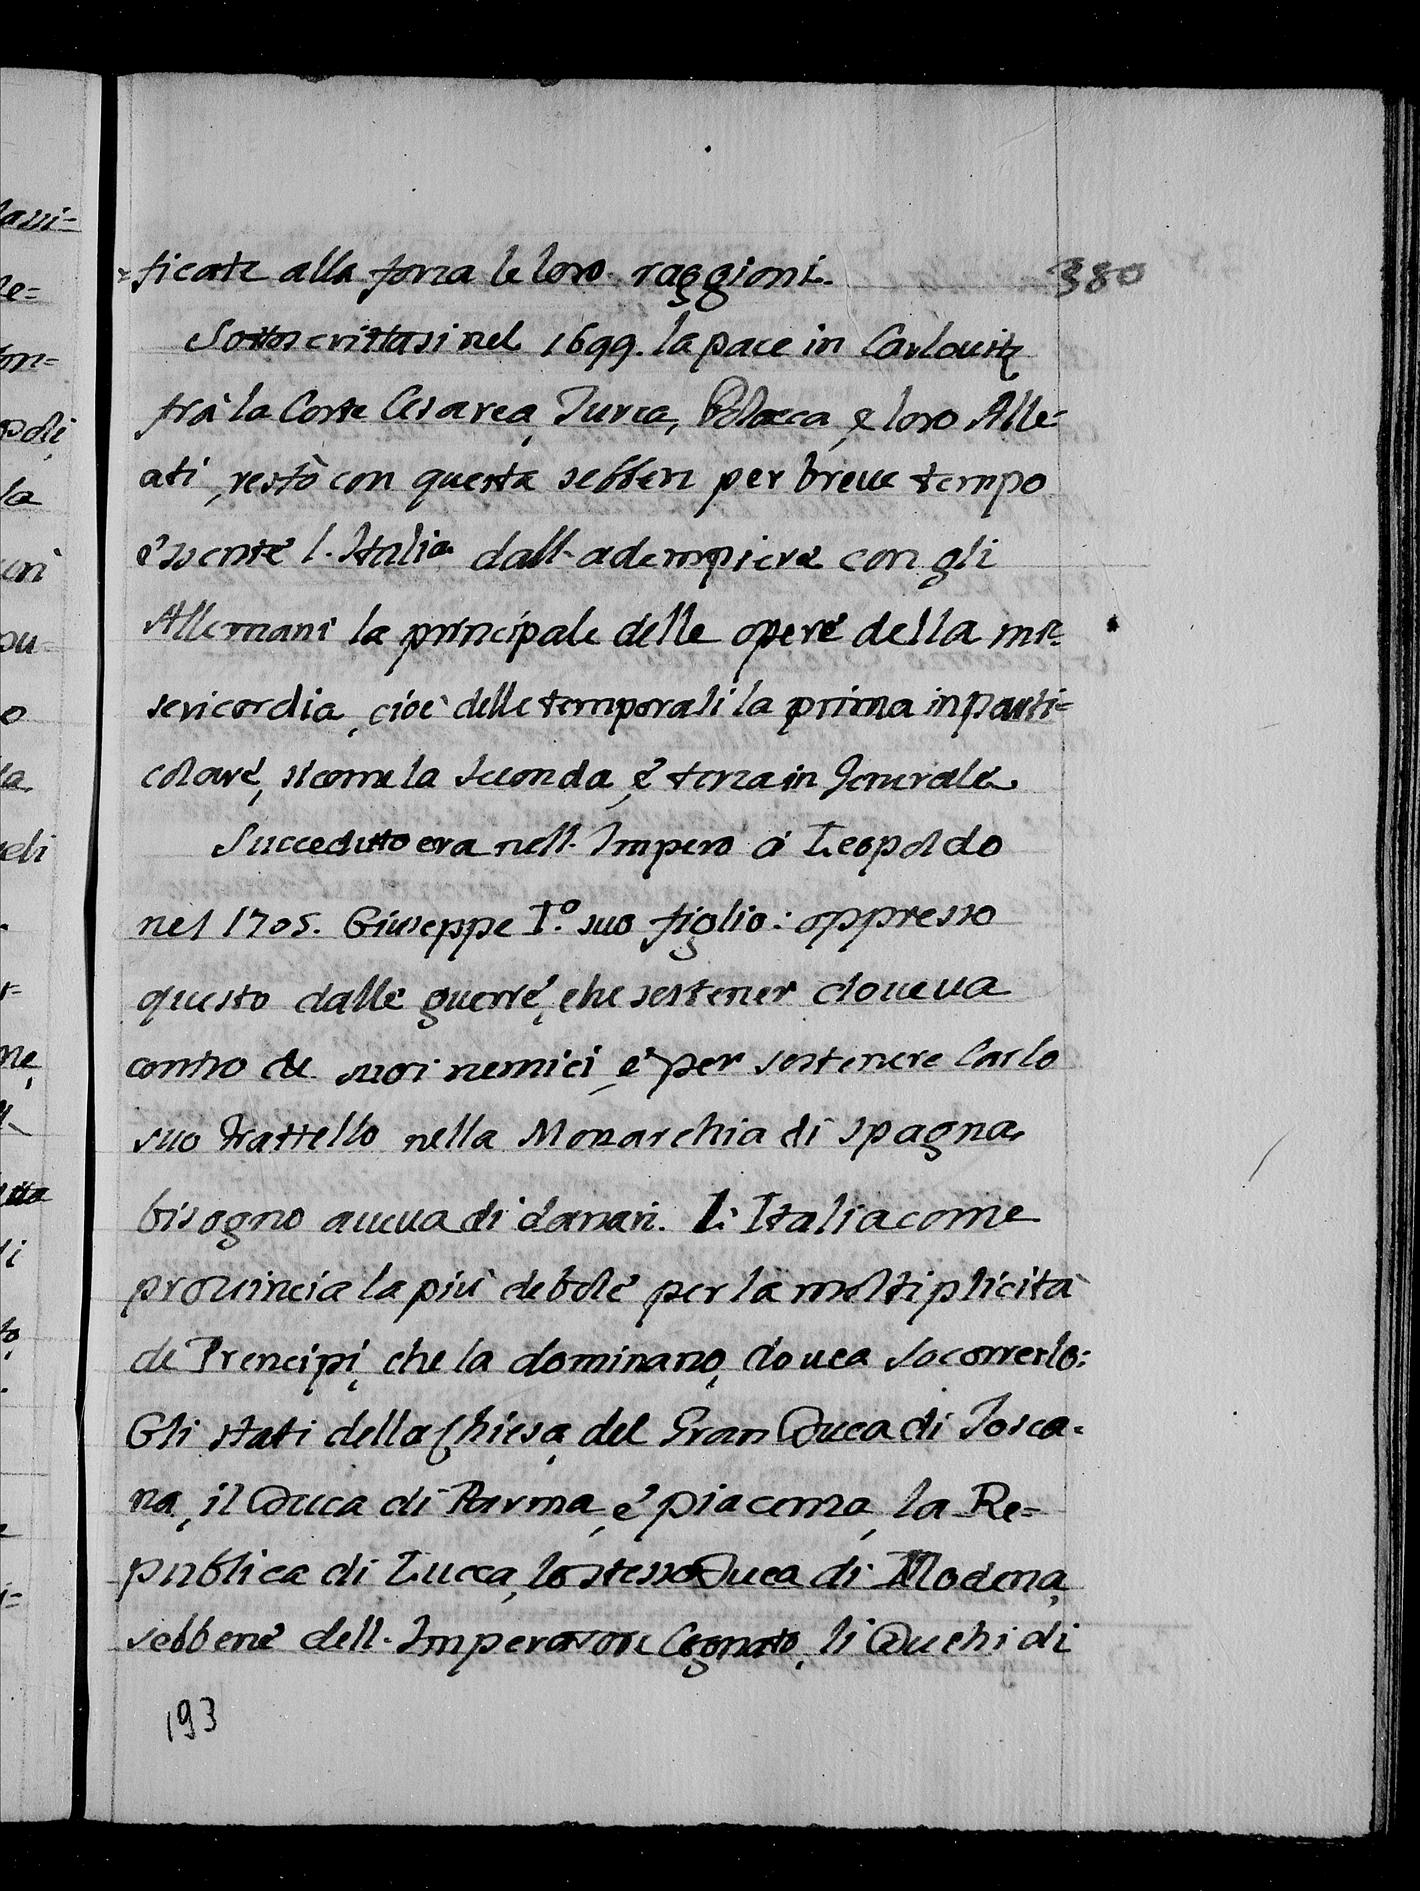 =ficate alla forza le loro raggioni.
380
Sottoscrittasi nel 1699. la pace in Carlouitz
trà la Corte Cesarea, Turca, Polacca, e loro Alle-
ati, restò con questa sebben per breue tempo
èssente l'Italia dall'adempiere con gli
Allemani la principale delle opere della mi-
sericordia, cioè delle temporali la prima in parti=
colare, sicome la seconda, è terza in Generale
Succeduto era nell'Impero à Leopoldo
nel 1705. Giuseppe I.º suo figlio: oppresso
questo dalle guerre, che sostener doueua
contro de suoi nemici, è per sostenere Carlo
suo frattello nella Monarchia di spagna
bisogno aueua di danari. L'Italia come
prouincia la più debole per la moltiplicità
de Prencipi, che la dominano, douea socorrerlo:
Gli stati della Chiesa, del Gran Duca di Tosca-
na, il Duca di Parma, è piacenza, la Re=
publica di Lucca, lo stesso Duca di Modena,
sebbene dell'Imperatore Cognato, li Duchi di
193